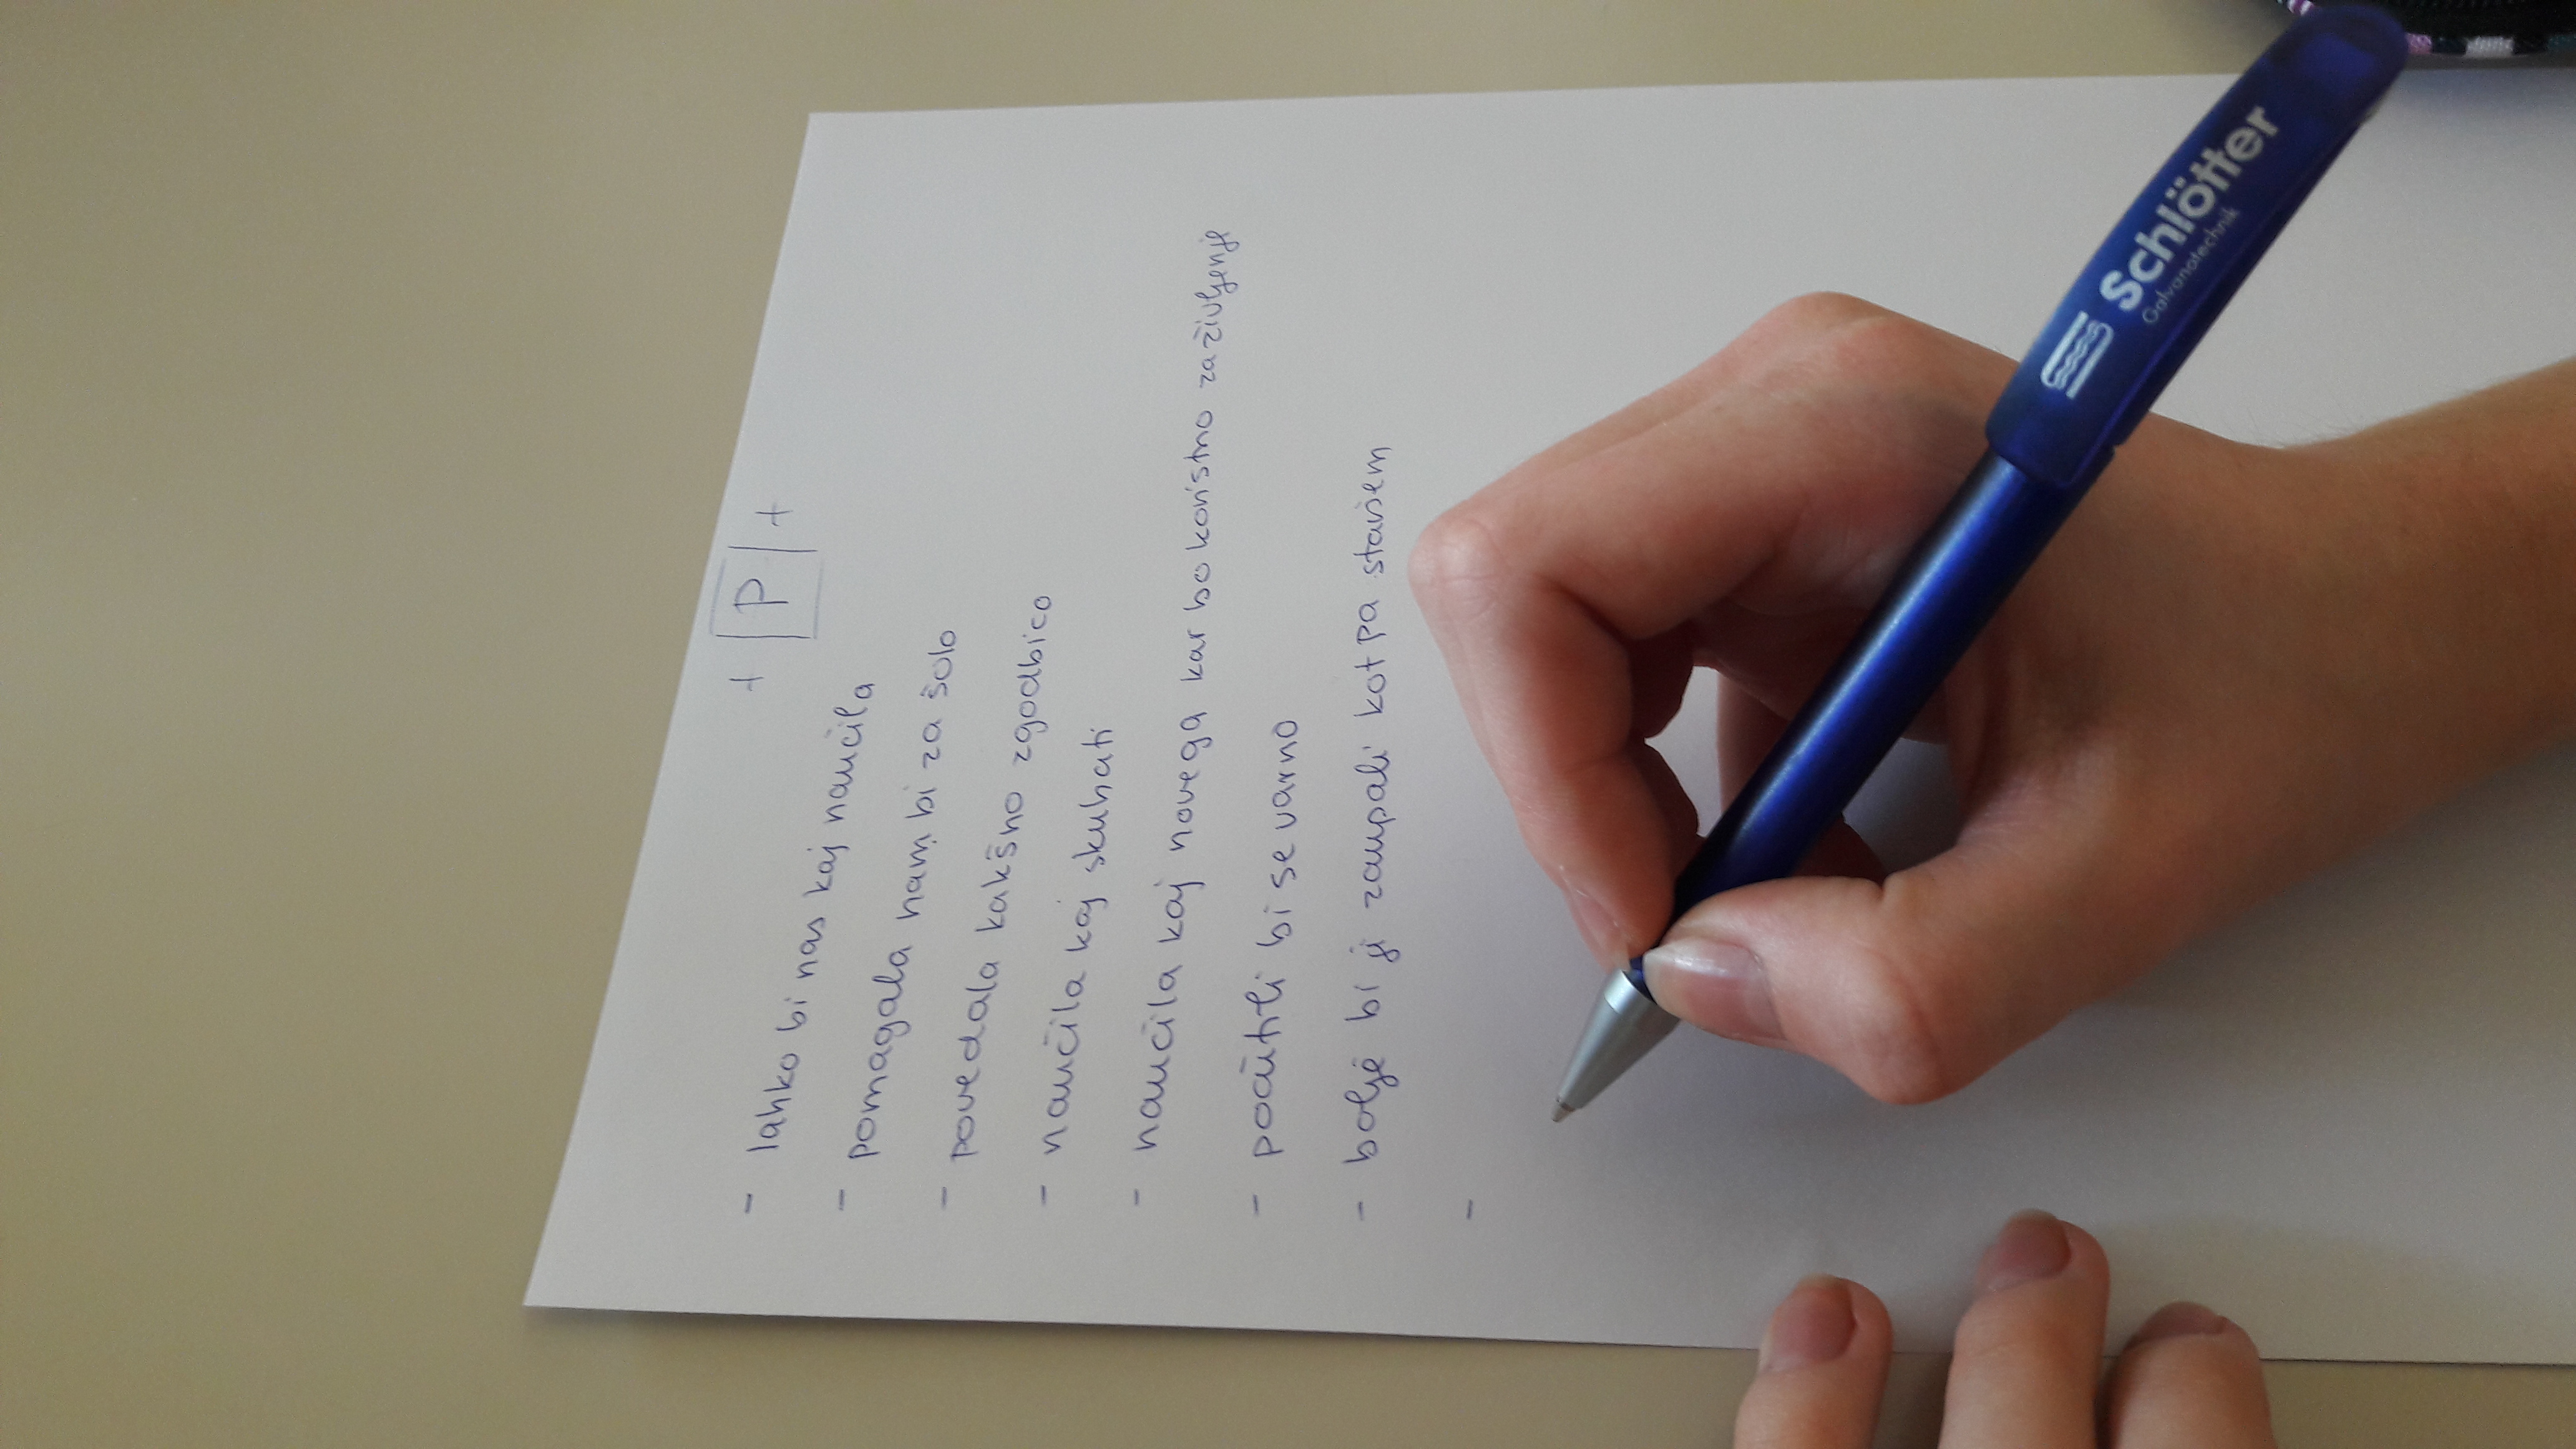 + P +
- lahko bi nas kaj naučila
- pomagala nam bi za šolo
- povedala kakšno zgodbico
- naučila kaj skuhati
- naučila kaj novega kar bo koristno za življenje
- počutili bi se varno
- bolje bi ji zaupali kot pa staršem
-
Schlötter
Galvanotechnik